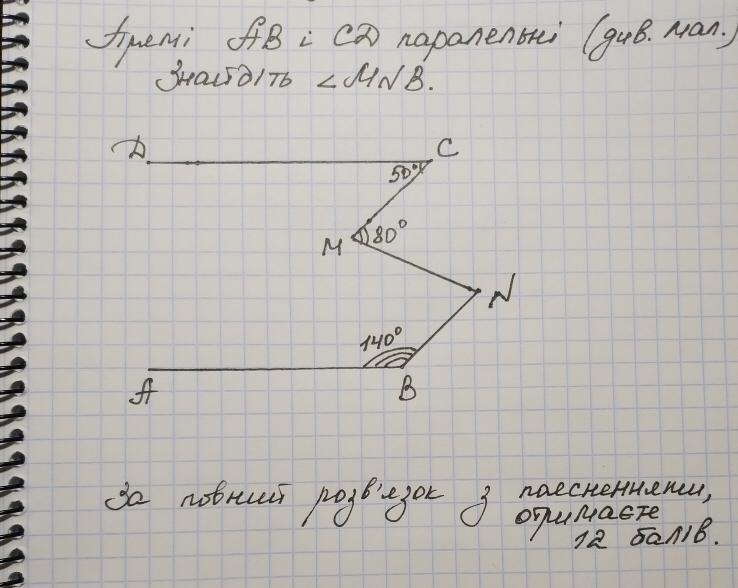 Прямі AB і CD паралельні (див. мал.)
Знайдіть ∠MNB.
D C
50°
M 80°
N
140°
A B
За повний розв'язок з поясненнями,
отримаєте
12 балів.